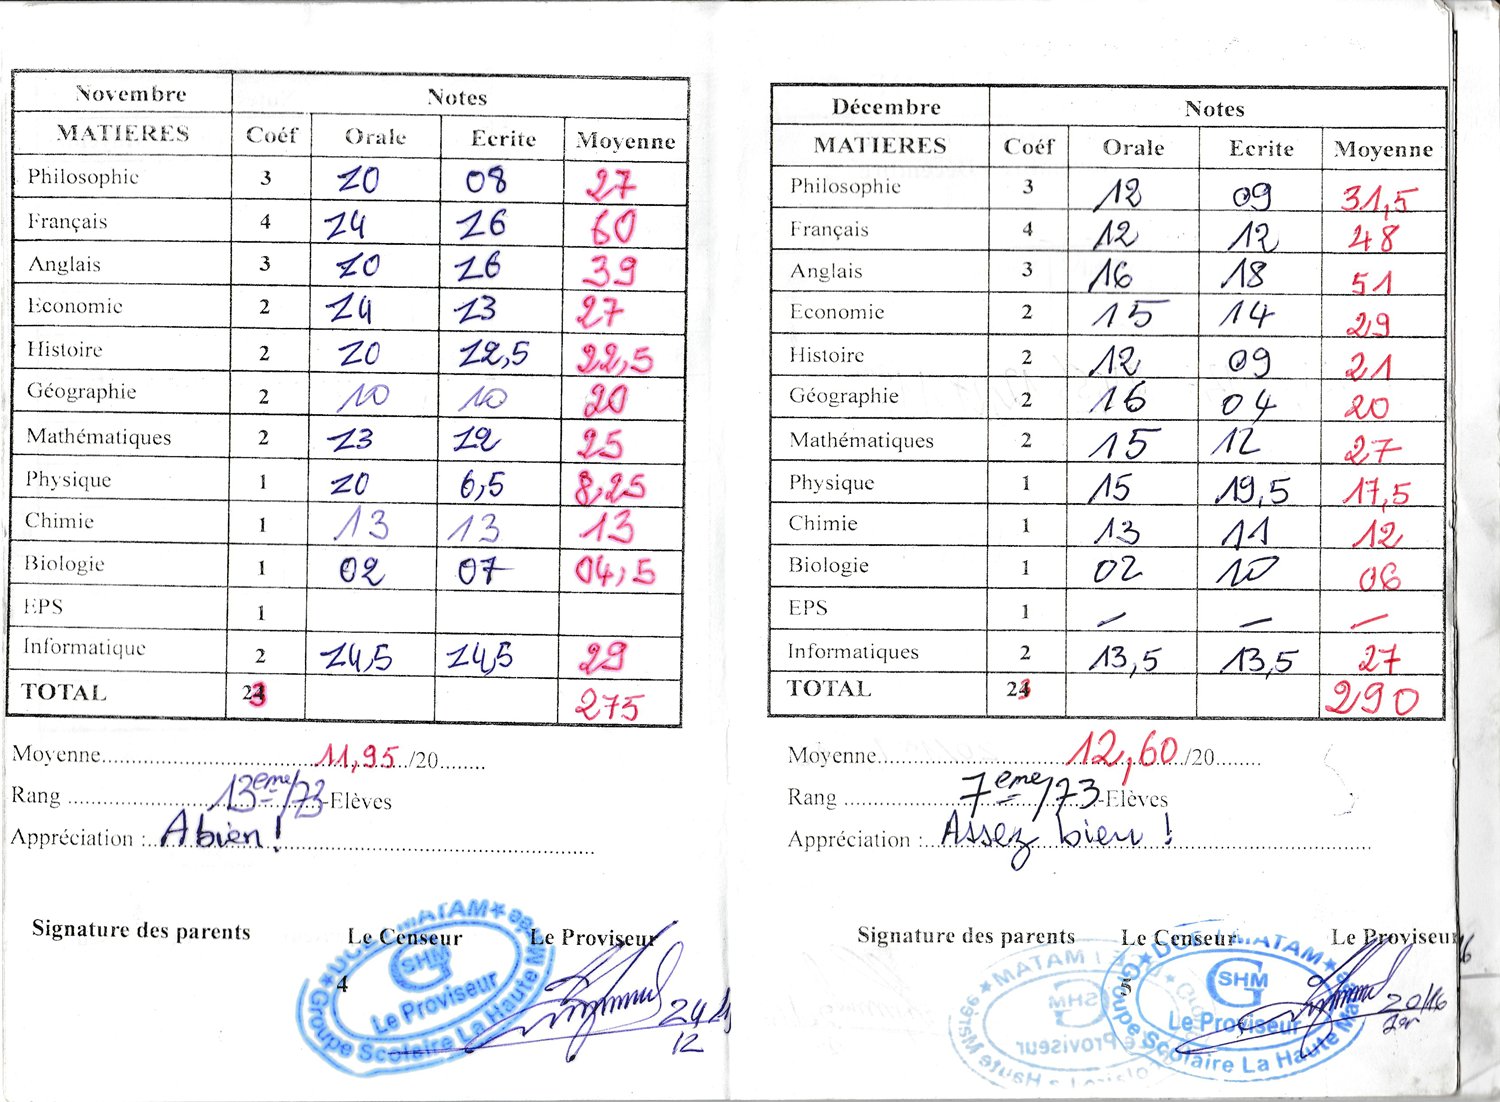 Novembre Notes
MATIERES Coéf Orale Ecrite Moyenne
Philosophie 3 10 08 27
Français 4 14 16 60
Anglais 3 10 16 39
Economie 2 14 13 27
Histoire 2 10 12,5 22,5
Géographie 2 10 10 20
Mathématiques 2 13 12 25
Physique 1 10 6,5 8,25
Chimie 1 13 13 13
Biologie 1 02 07 04,5
EPS 1
Informatique 2 14,5 14,5 29
TOTAL 23 275
Moyenne 11,95 /20
Rang 13eme/73 -Elèves
Appréciation : A bien !
Signature des parents Le Censeur Le Proviseur
4
DCE / MATAM
SHM
Le Proviseur
Groupe Scolaire La Haute Ma
12
Décembre Notes
MATIERES Coéf Orale Ecrite Moyenne
Philosophie 3 12 09 31,5
Français 4 12 12 48
Anglais 3 16 18 51
Economie 2 15 14 29
Histoire 2 12 09 21
Géographie 2 16 04 20
Mathématiques 2 15 12 27
Physique 1 15 19,5 17,5
Chimie 1 13 11 12
Biologie 1 02 10 06
EPS 1 – – –
Informatiques 2 13,5 13,5 27
TOTAL 23 290
Moyenne 12,60 /20
Rang 7eme/73 -Elèves
Appréciation : Assez bien !
Signature des parents Le Censeur Le Proviseur
DCE / MATAM
SHM
Le Proviseur
Groupe Scolaire La Haute Ma
20/16